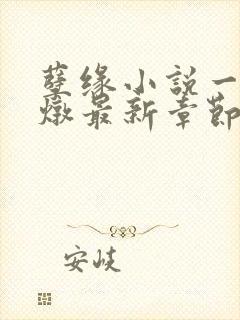 孽缘小说一
燉最新章節
安岐